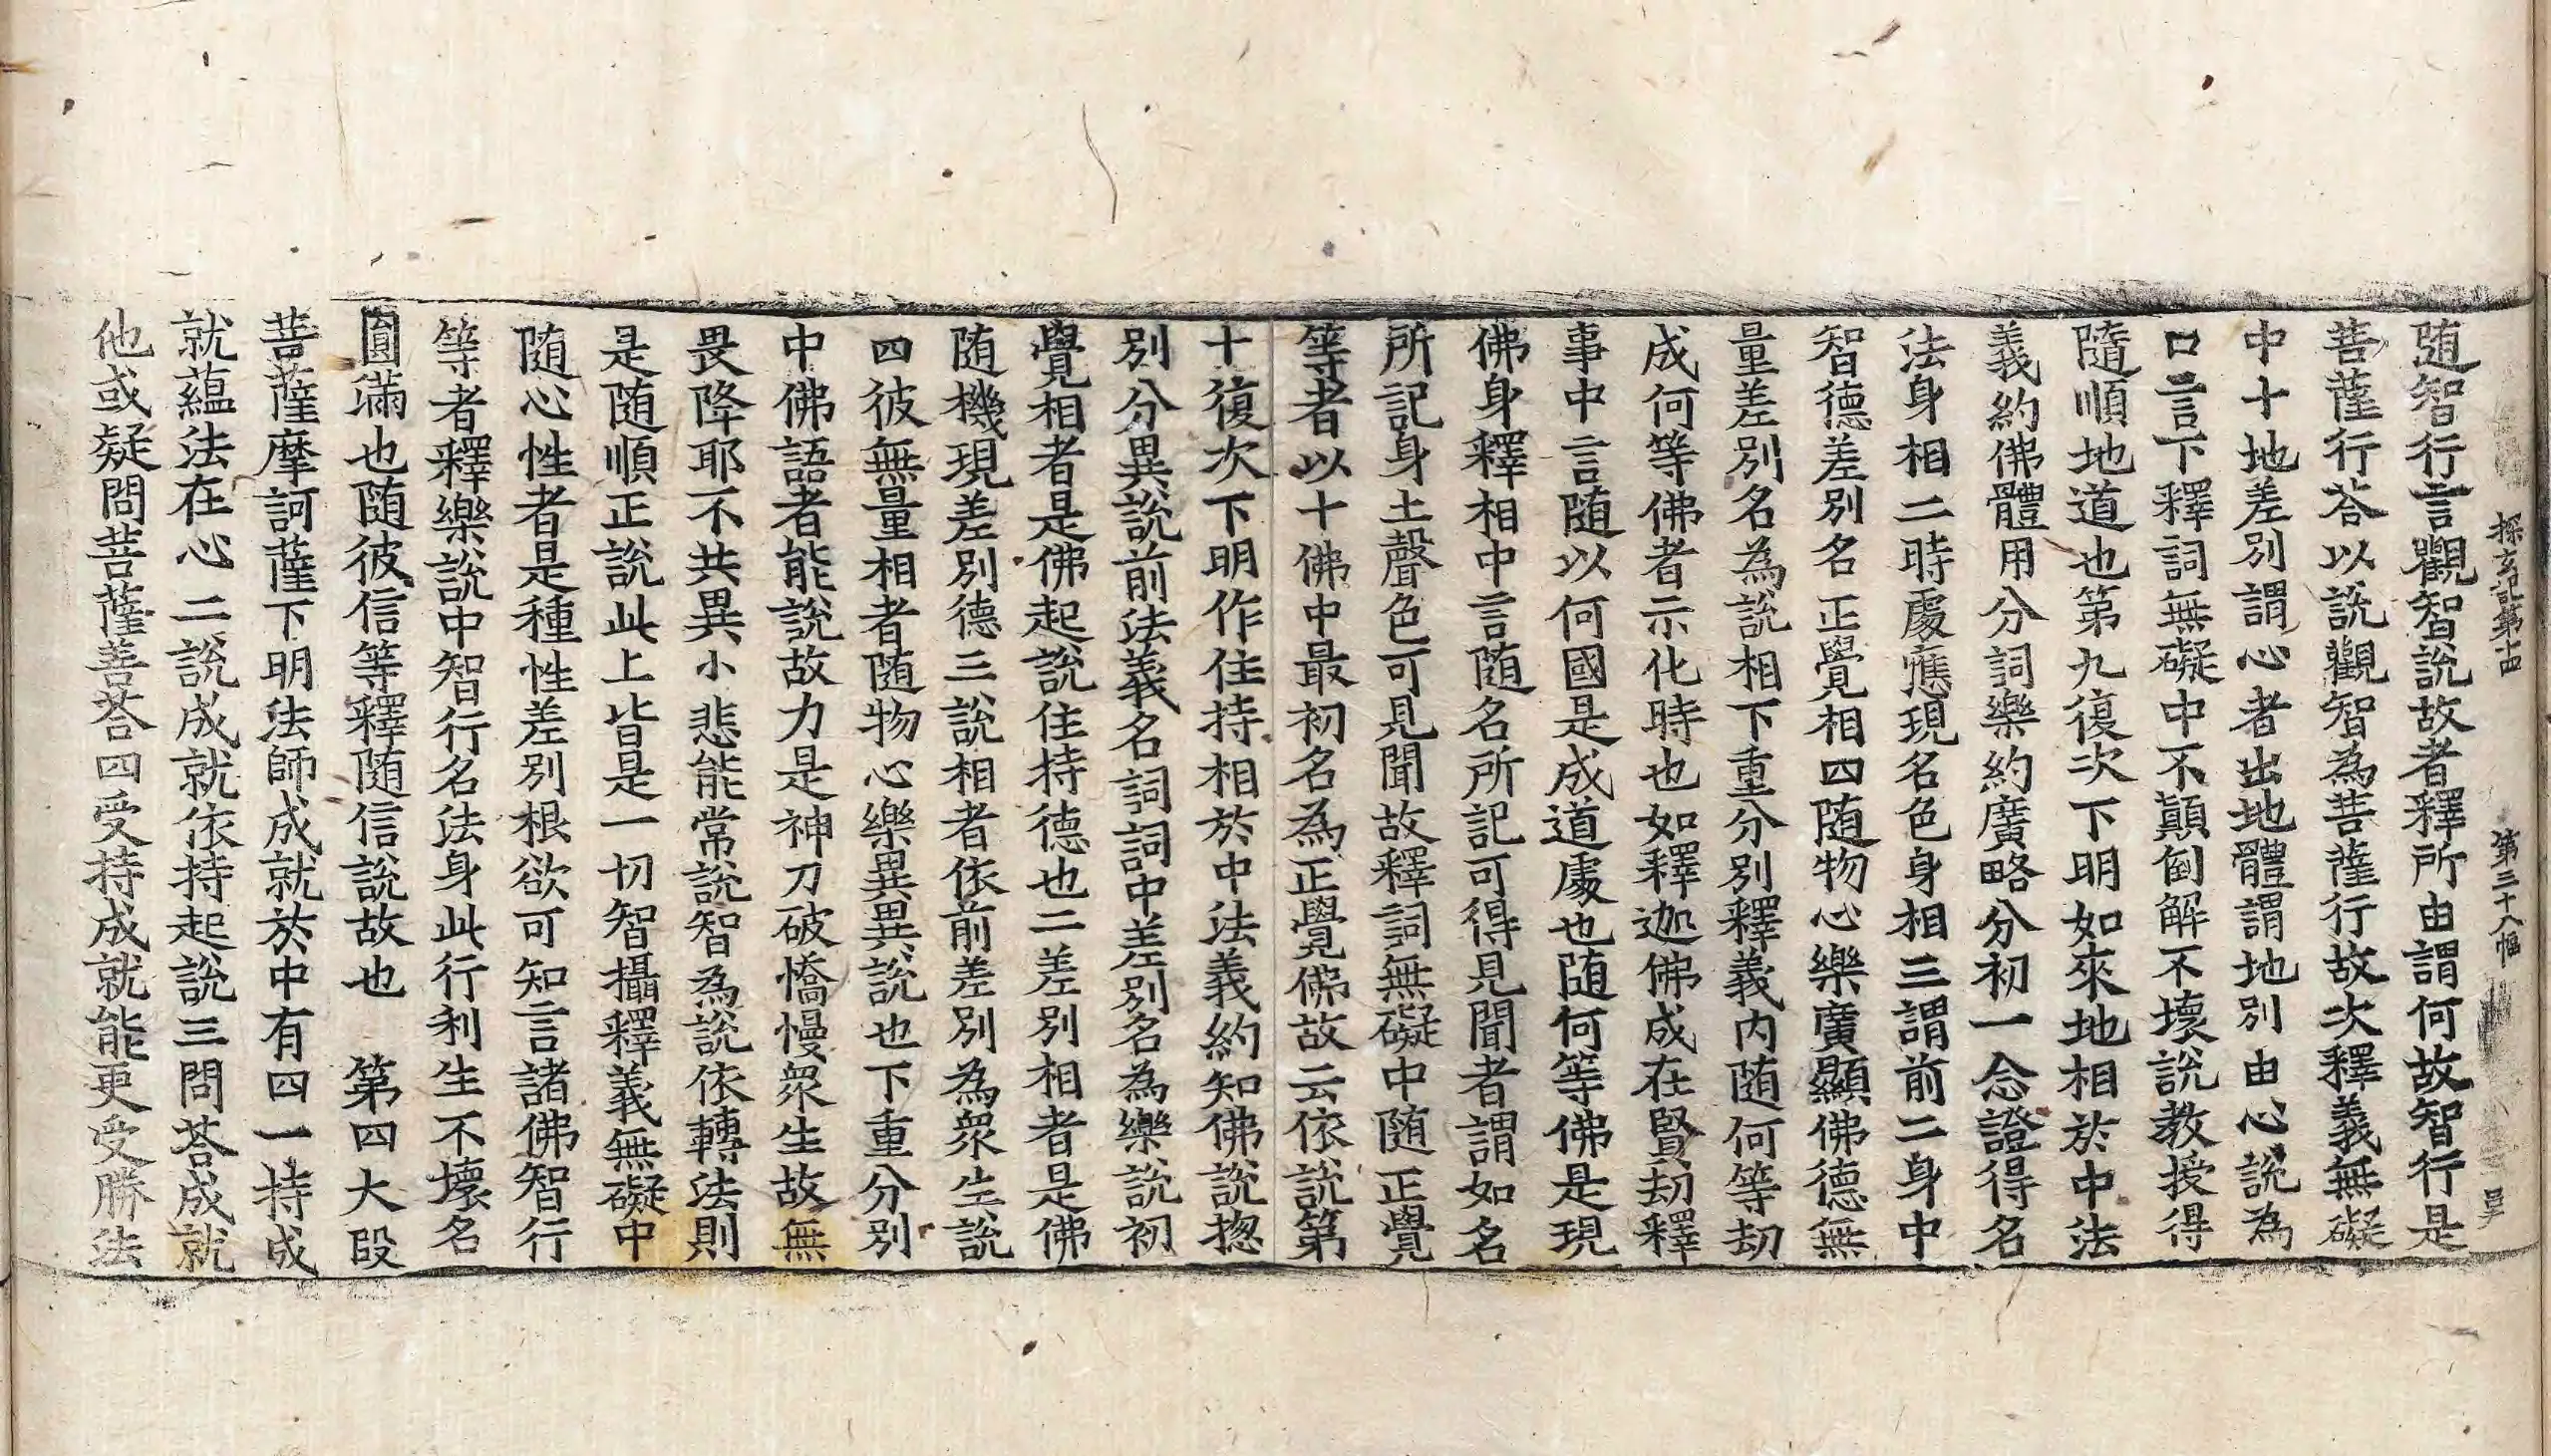 探玄記第十四 第三十八幅 㠯
随智行言觀智說故者釋所由謂何故智行是
菩薩行荅以說觀智為菩薩行故次釋義無礙
中十地差別謂心者出地體謂地別由心說為
口言下釋詞無礙中不顛倒解不壞說教授得
隨順地道也第九復次下明如來地相於中法
義約佛體用分詞樂約廣略分初一念證得名
法身相二時處應現名色身相三謂前二身中
智德差別名正覺相四随物心樂廣顯佛德無
量差別名為說相下重分別釋義內随何等劫
成何等佛者示化時也如釋迦佛成在賢劫釋
事中言随以何國是成道處也随何等佛是現
佛身釋相中言随名所記可得見聞者謂如名
所記身土聲色可見聞故釋詞無礙中随正覺
等者以十佛中最初名為正覺佛故云依說第
十復次下明作住持相於中法義約知佛說揔
別分異說前法義名詞詞中差別名為樂說初
覺相者是佛起說住持德也二差別相者是佛
随機現差別德三說相者依前差別為衆生說
四彼無量相者随物心樂異異說也下重分別
中佛語者能說故力是神刀破憍慢衆生故無
畏降耶不共異小悲能常說智為說依轉法則
是随順正說此上皆是一切智攝釋義無礙中
随心性者是種性差別根欲可知言諸佛智行
等者釋樂說中智行名法身此行利生不壞名
圓滿也随彼信等釋随信說故也　第四大段
菩薩摩訶薩下明法師成就於中有四一持成
就蘊法在心二說成就依持起說三問荅成就
他或疑問菩薩善荅四受持成就能更受勝法